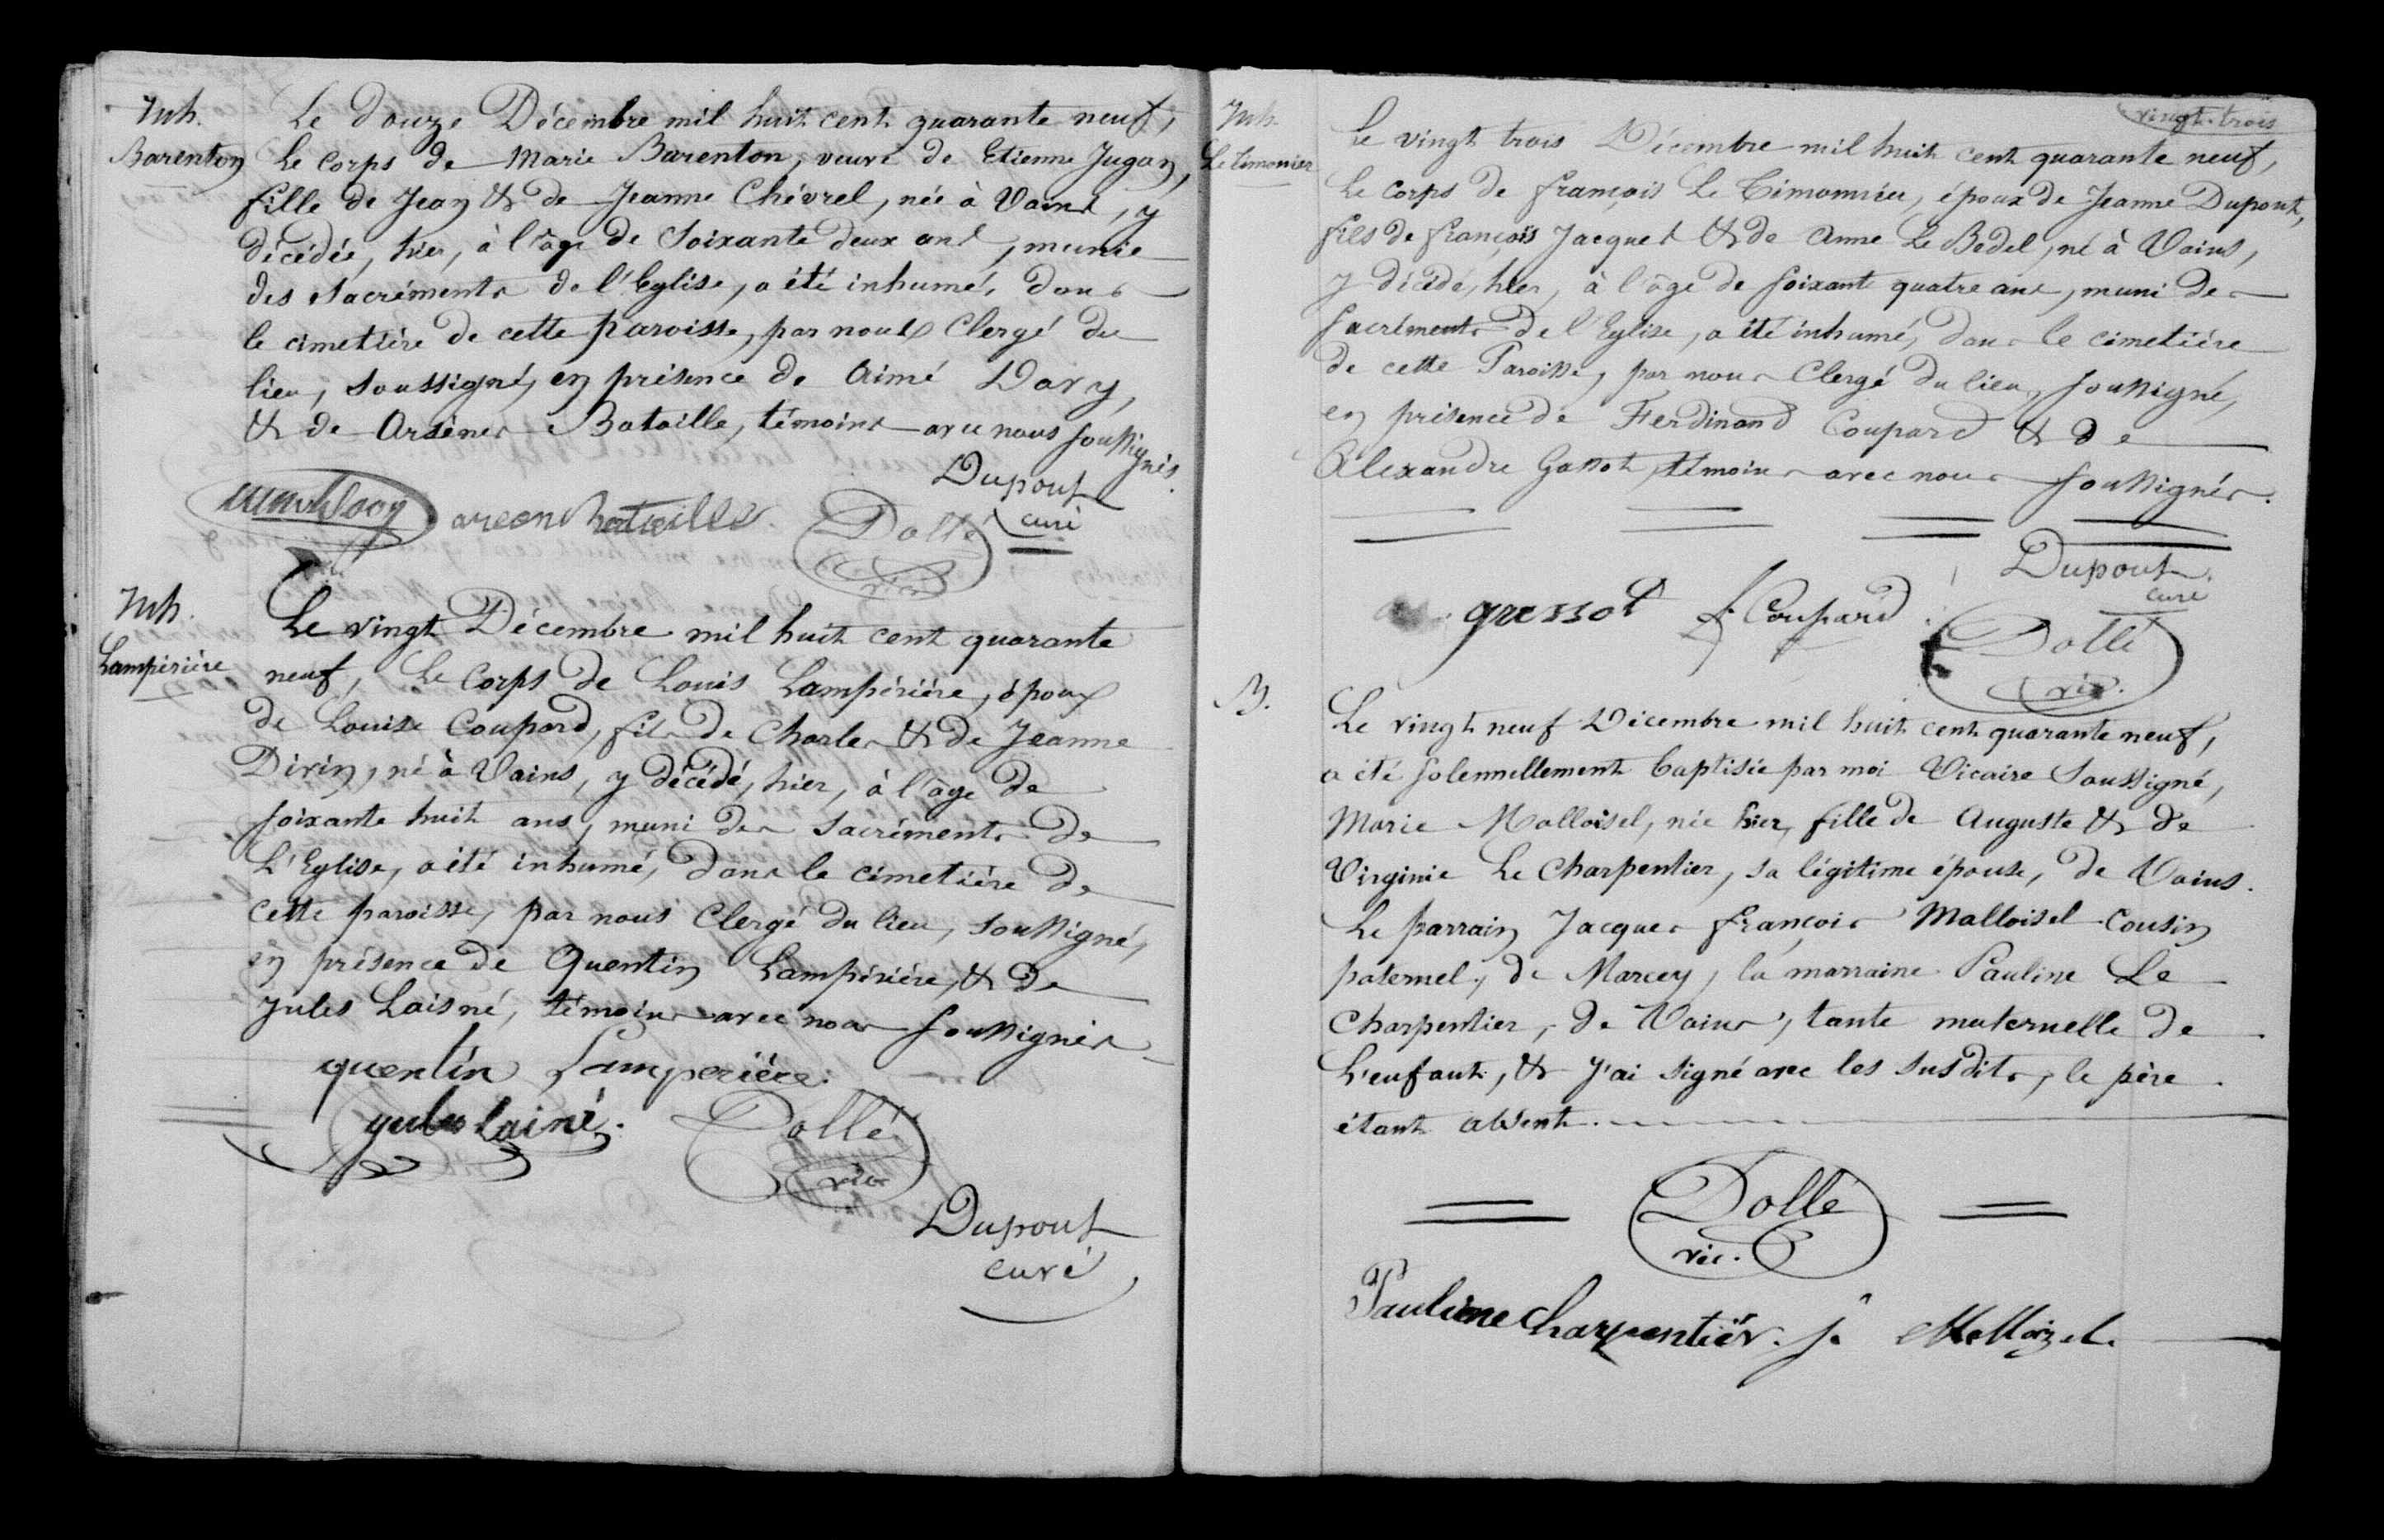 Inh.
Barenton
Le douze Décembre mil huit cent quarante neuf,
Le corps de Marie Barenton, veuve de Etienne Jugan,
fille de Jean & de Jeanne Chévrel, née à Vains, y
décédée, hier, à l'âge de soixante deux ans, munie
des sacréments de l'Eglise, a été inhumé, dans
le cimetière de cette paroisse, par nous Clergé du
lieu, soussigné, en présence de Aimé Davy,
& de Arsène Bataille, témoins avec nous soussignés.
Dupont
curé
arcen bataille
Dollé
vic
Inh.
Lampérière
Le vingt Décembre mil huit cent quarante
neuf, Le Corps de Louis Lampérière, époux
de Louise Coupard, fils de Charles & de Jeanne
Divin, né à Vains, y décédé, hier, à l'âge de
soixante huit ans, muni des sacréments de
L'Eglise, a été inhumé, dans le cimetière de
cette paroisse, par nous Clergé du lieu, soussigné,
en présence de Quentin Lampérière, & de
Jules Laisné, témoins avec nous soussignés
quentin Lamperière.
jules lainé.
Dollé
vic
Dupont
curé
vingt-trois
Inh.
Le Timonier
Le vingt trois Décembre mil huit cent quarante neuf,
Le corps de françois Le Timonnier, époux de Jeanne Dupont,
fils de françois Jacques & de Anne Le Bedel, né à Vains,
y décédé, hier, à l'âge de soixante quatre ans, muni des
sacréments de l'Eglise, a été inhumé, dans le cimetière
de cette Paroisse, par nous Clergé du lieu, soussigné,
en présence de Ferdinand Coupard & de
Alexandre Gassot, témoins avec nous soussignés.
Dupont
curé
gressot
f Coupard
Dollé
vic.
B.
Le vingt neuf Décembre mil huit cent quarante neuf,
a été solennellement baptisée par moi Vicaire soussigné,
Marie Malloisel, née hier, fille de Auguste & de
Virginie Le Charpentier, sa légitime épouse, de Vains.
Le parrain Jacques françois Malloisel cousin
paternel, de Marcey, la marraine Pauline Le
Charpentier, de Vains, tante maternelle de
L'enfant, & j'ai signé avec les susdits, le père
étant absent.
Dollé
vic.
Pauline Charpentier. j. Malloizel.